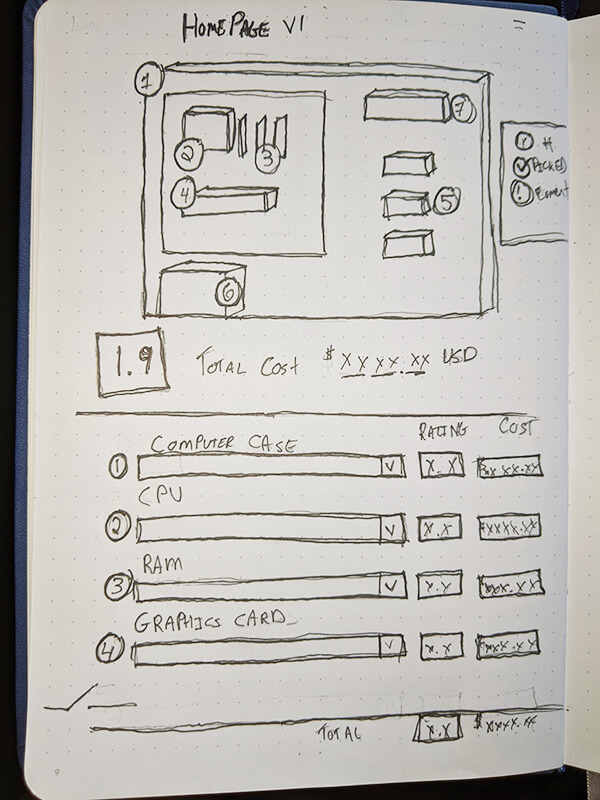 HOMEPAGE V1
1
7
2
3
4
5
6
PICKED
!
1.9 TOTAL COST $ XX XX.XX USD
RATING COST
COMPUTER CASE
1 V X.X $XX XX.XX
CPU
2 V X.X $XXXX.XX
RAM
3 V X.X
GRAPHICS CARD
4 V X.X
TOTAL X.X $XXXX.XX
9